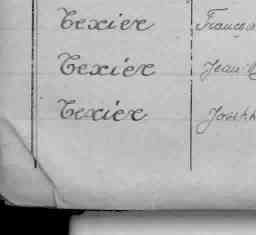 Texier Franço
Texier Jean
Texier Joseph